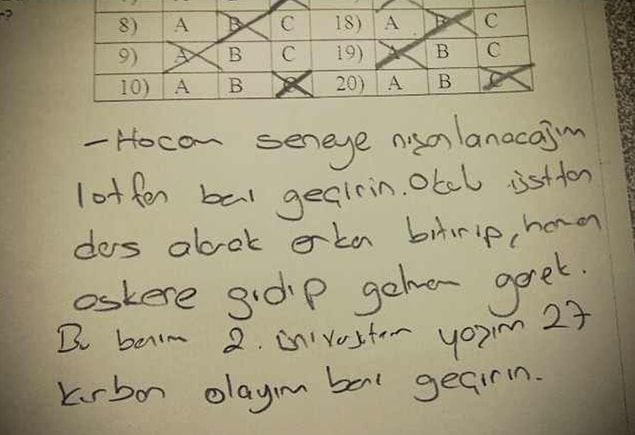 8) A B C 18) A B C
9) A B C 19) A B C
10) A B C 20) A B C
- Hocam seneye nişanlanacağım
lütfen beni geçirin. Okulu üstten
ders alarak erken bitirip, hemen
askere gidip gelmem gerek.
Bu benim 2. üniversitem yaşım 27
kurban olayım beni geçirin.